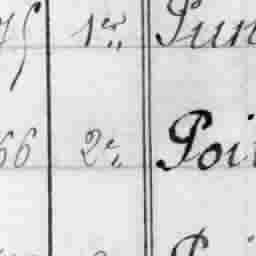 75 1er Pun
66 2e Poi